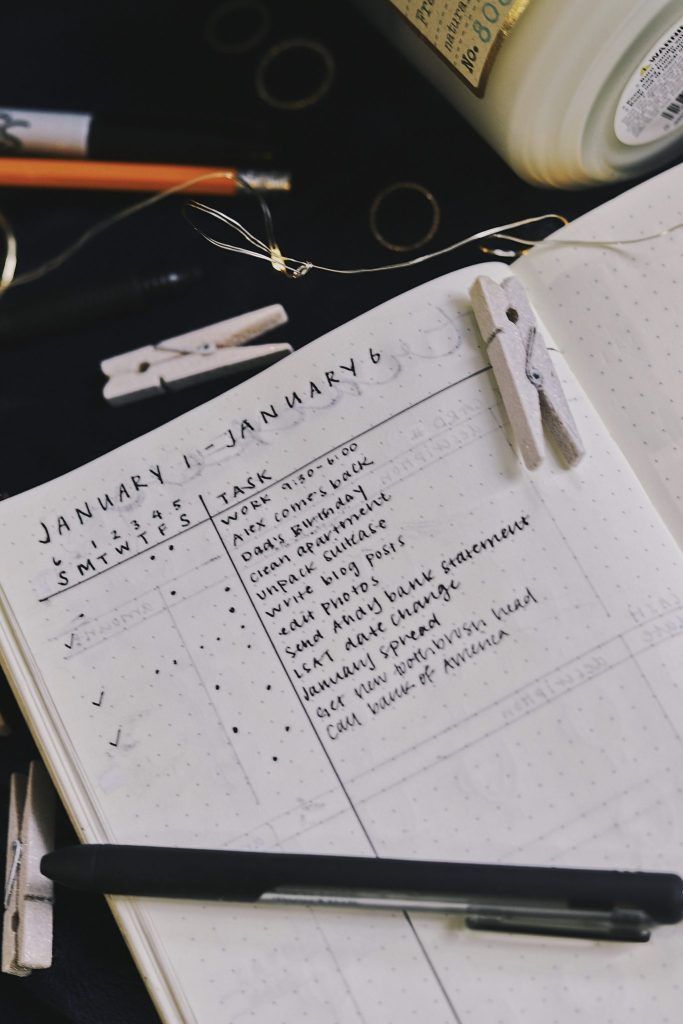 Fra
natura
No. 808
WARNIN
JANUARY 1 - JANUARY 6
6 1 2 3 4 5
S M T W T F S
TASK
WORK 9:30-6:00
Alex comes back
Dad's Birthday
clean apartment
unpack suitcase
write blog posts
edit photos
send Andy bank statement
LSAT date change
January spread
Get new toothbrush head
call bank of America